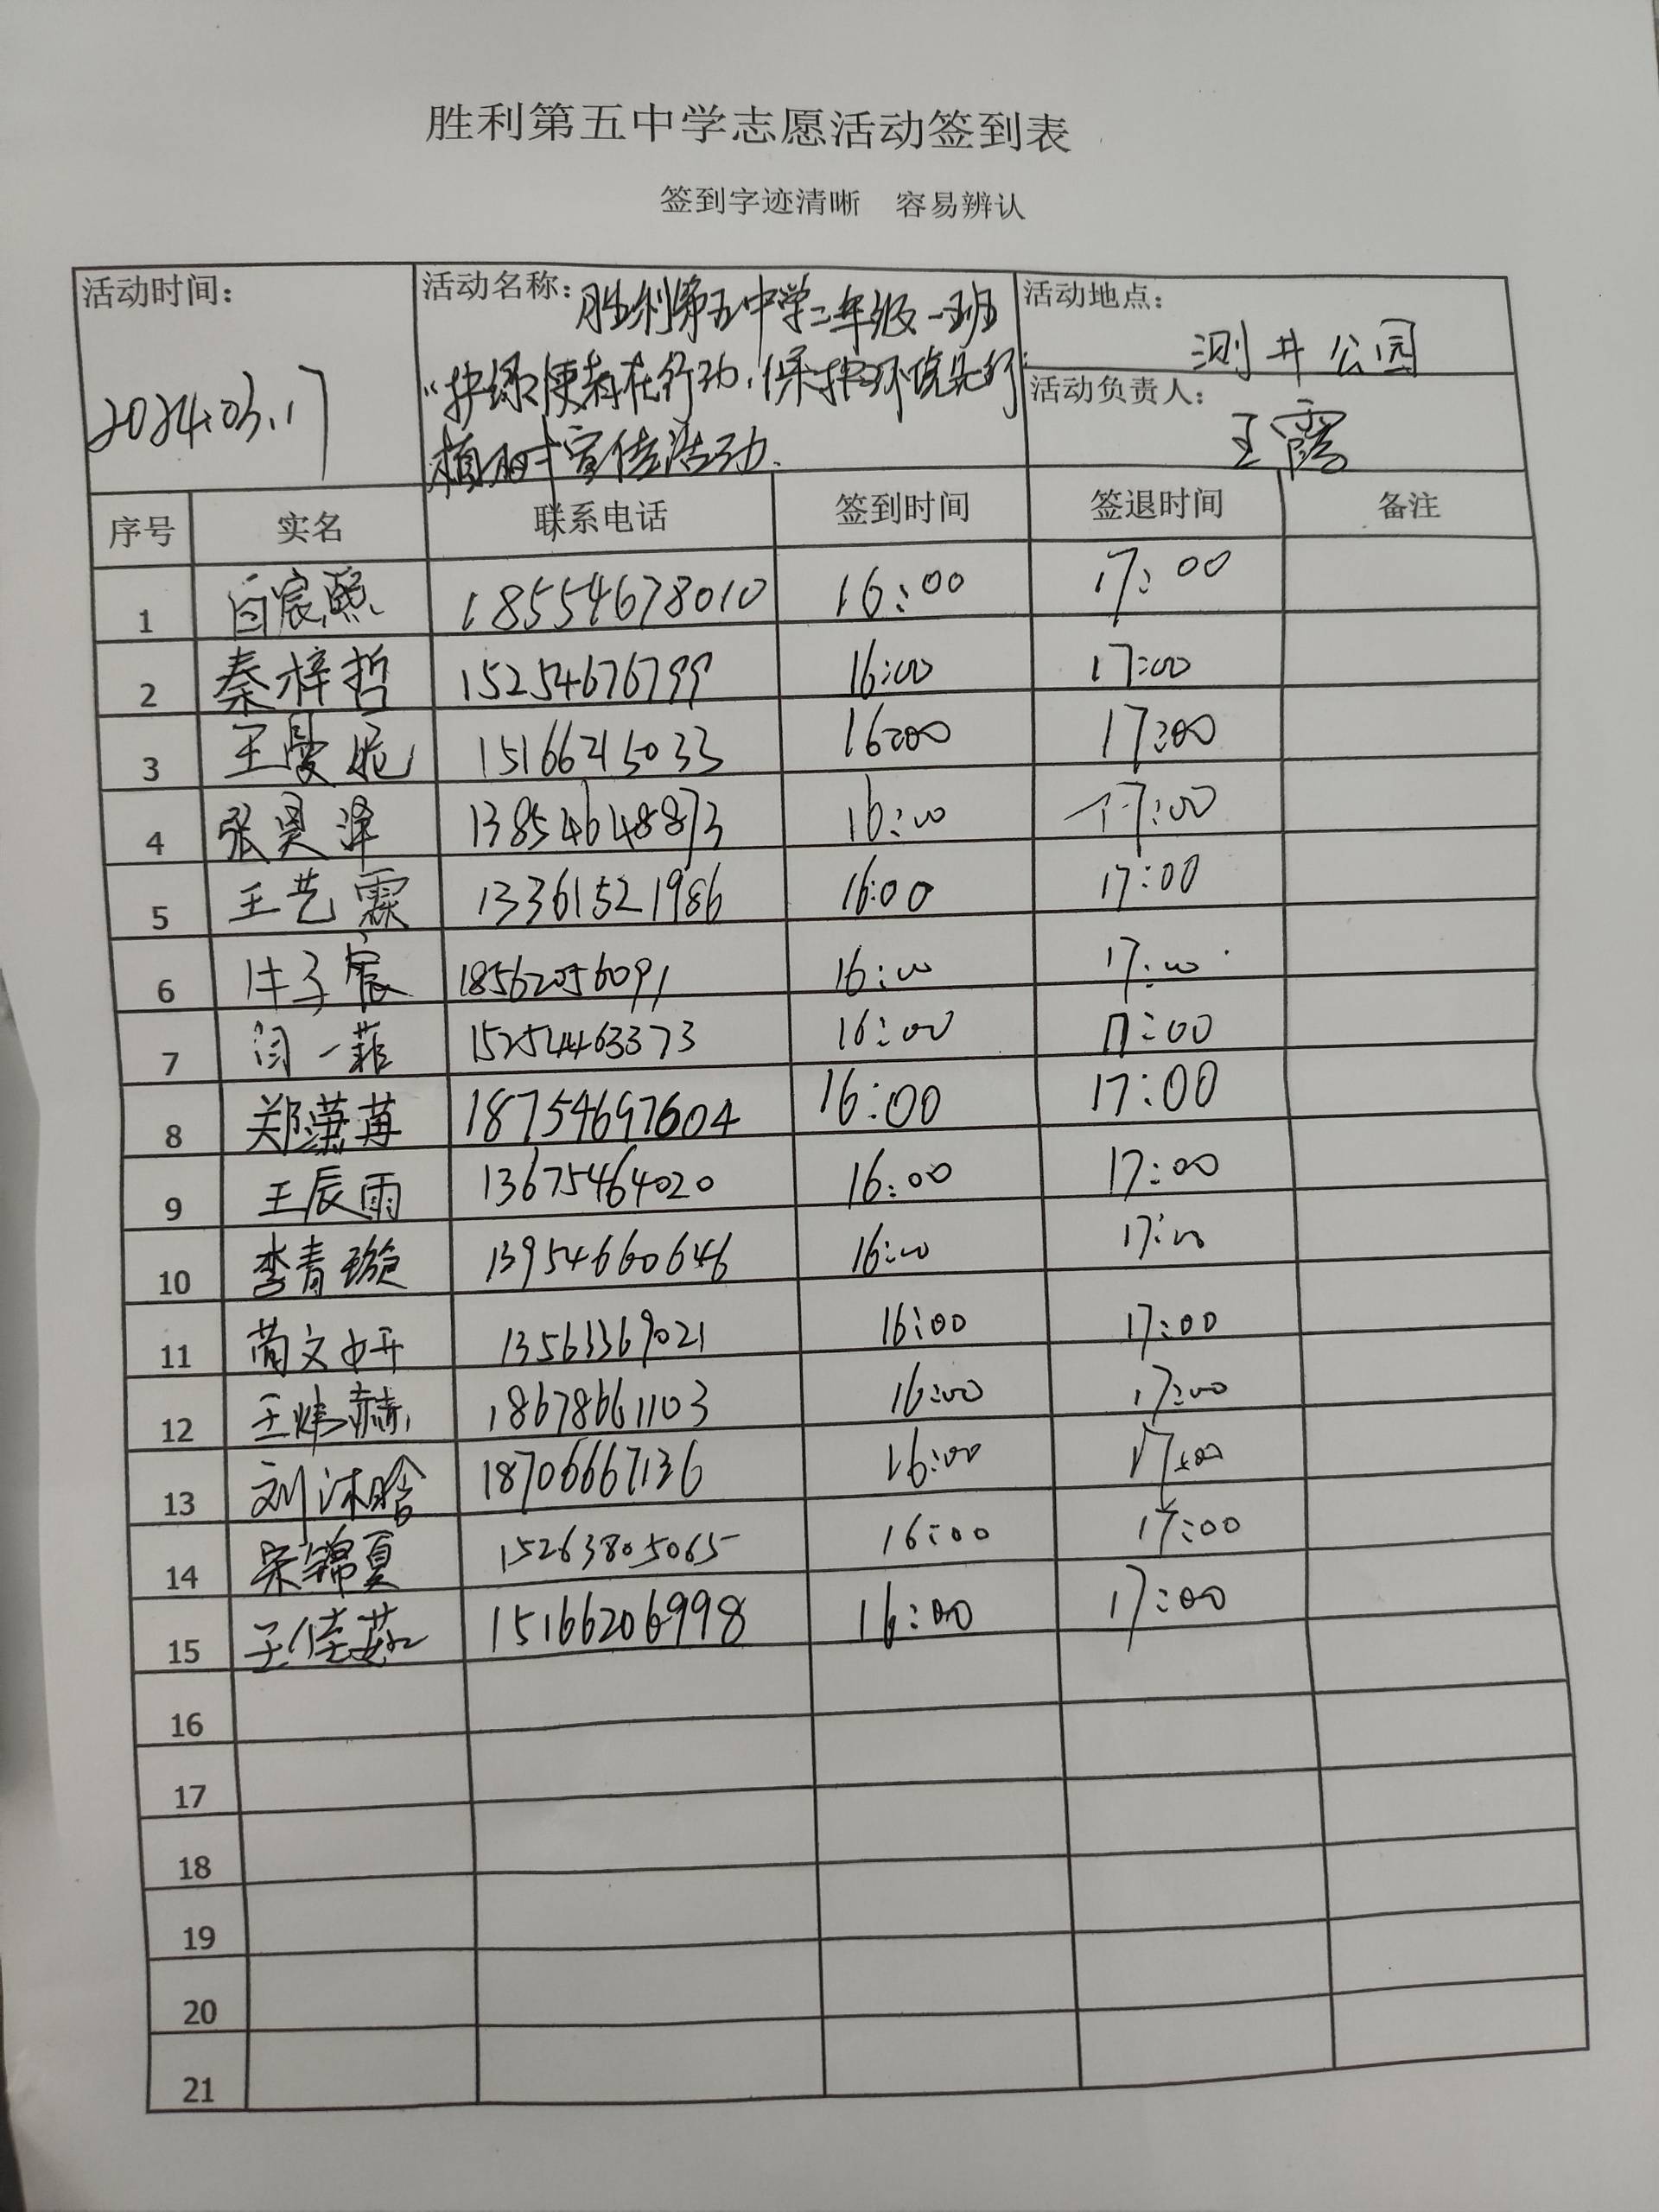 胜利第五中学志愿活动签到表
签到字迹清晰 容易辨认
活动时间: 2024.03.17
活动名称: 胜利第五中学二年级一班
"护绿使者在行动,保护环境先行"
植树宣传活动.
活动地点: 测井公园
活动负责人: 王霞
序号 实名 联系电话 签到时间 签退时间 备注
1 白宸熙 18554678010 16:00 17:00
2 秦梓哲 15254676799 16:00 17:00
3 王曼妮 15166215033 16:00 17:00
4 张昊泽 13854648873 16:00 17:00
5 王艺霖 13361521986 16:00 17:00
6 牛子宸 18562056091 16:00 17:00
7 闫一菲 15254463373 16:00 17:00
8 郑潇苒 18754697604 16:00 17:00
9 王辰雨 13675464020 16:00 17:00
10 李青璇 13954660646 16:00 17:00
11 蔺文妍 13563369021 16:00 17:00
12 王炜赫 18678661103 16:00 17:00
13 刘沐晗 18706667136 16:00 17:00
14 宋锦夏 15263805065 16:00 17:00
15 王佳茹 15166206998 16:00 17:00
16
17
18
19
20
21